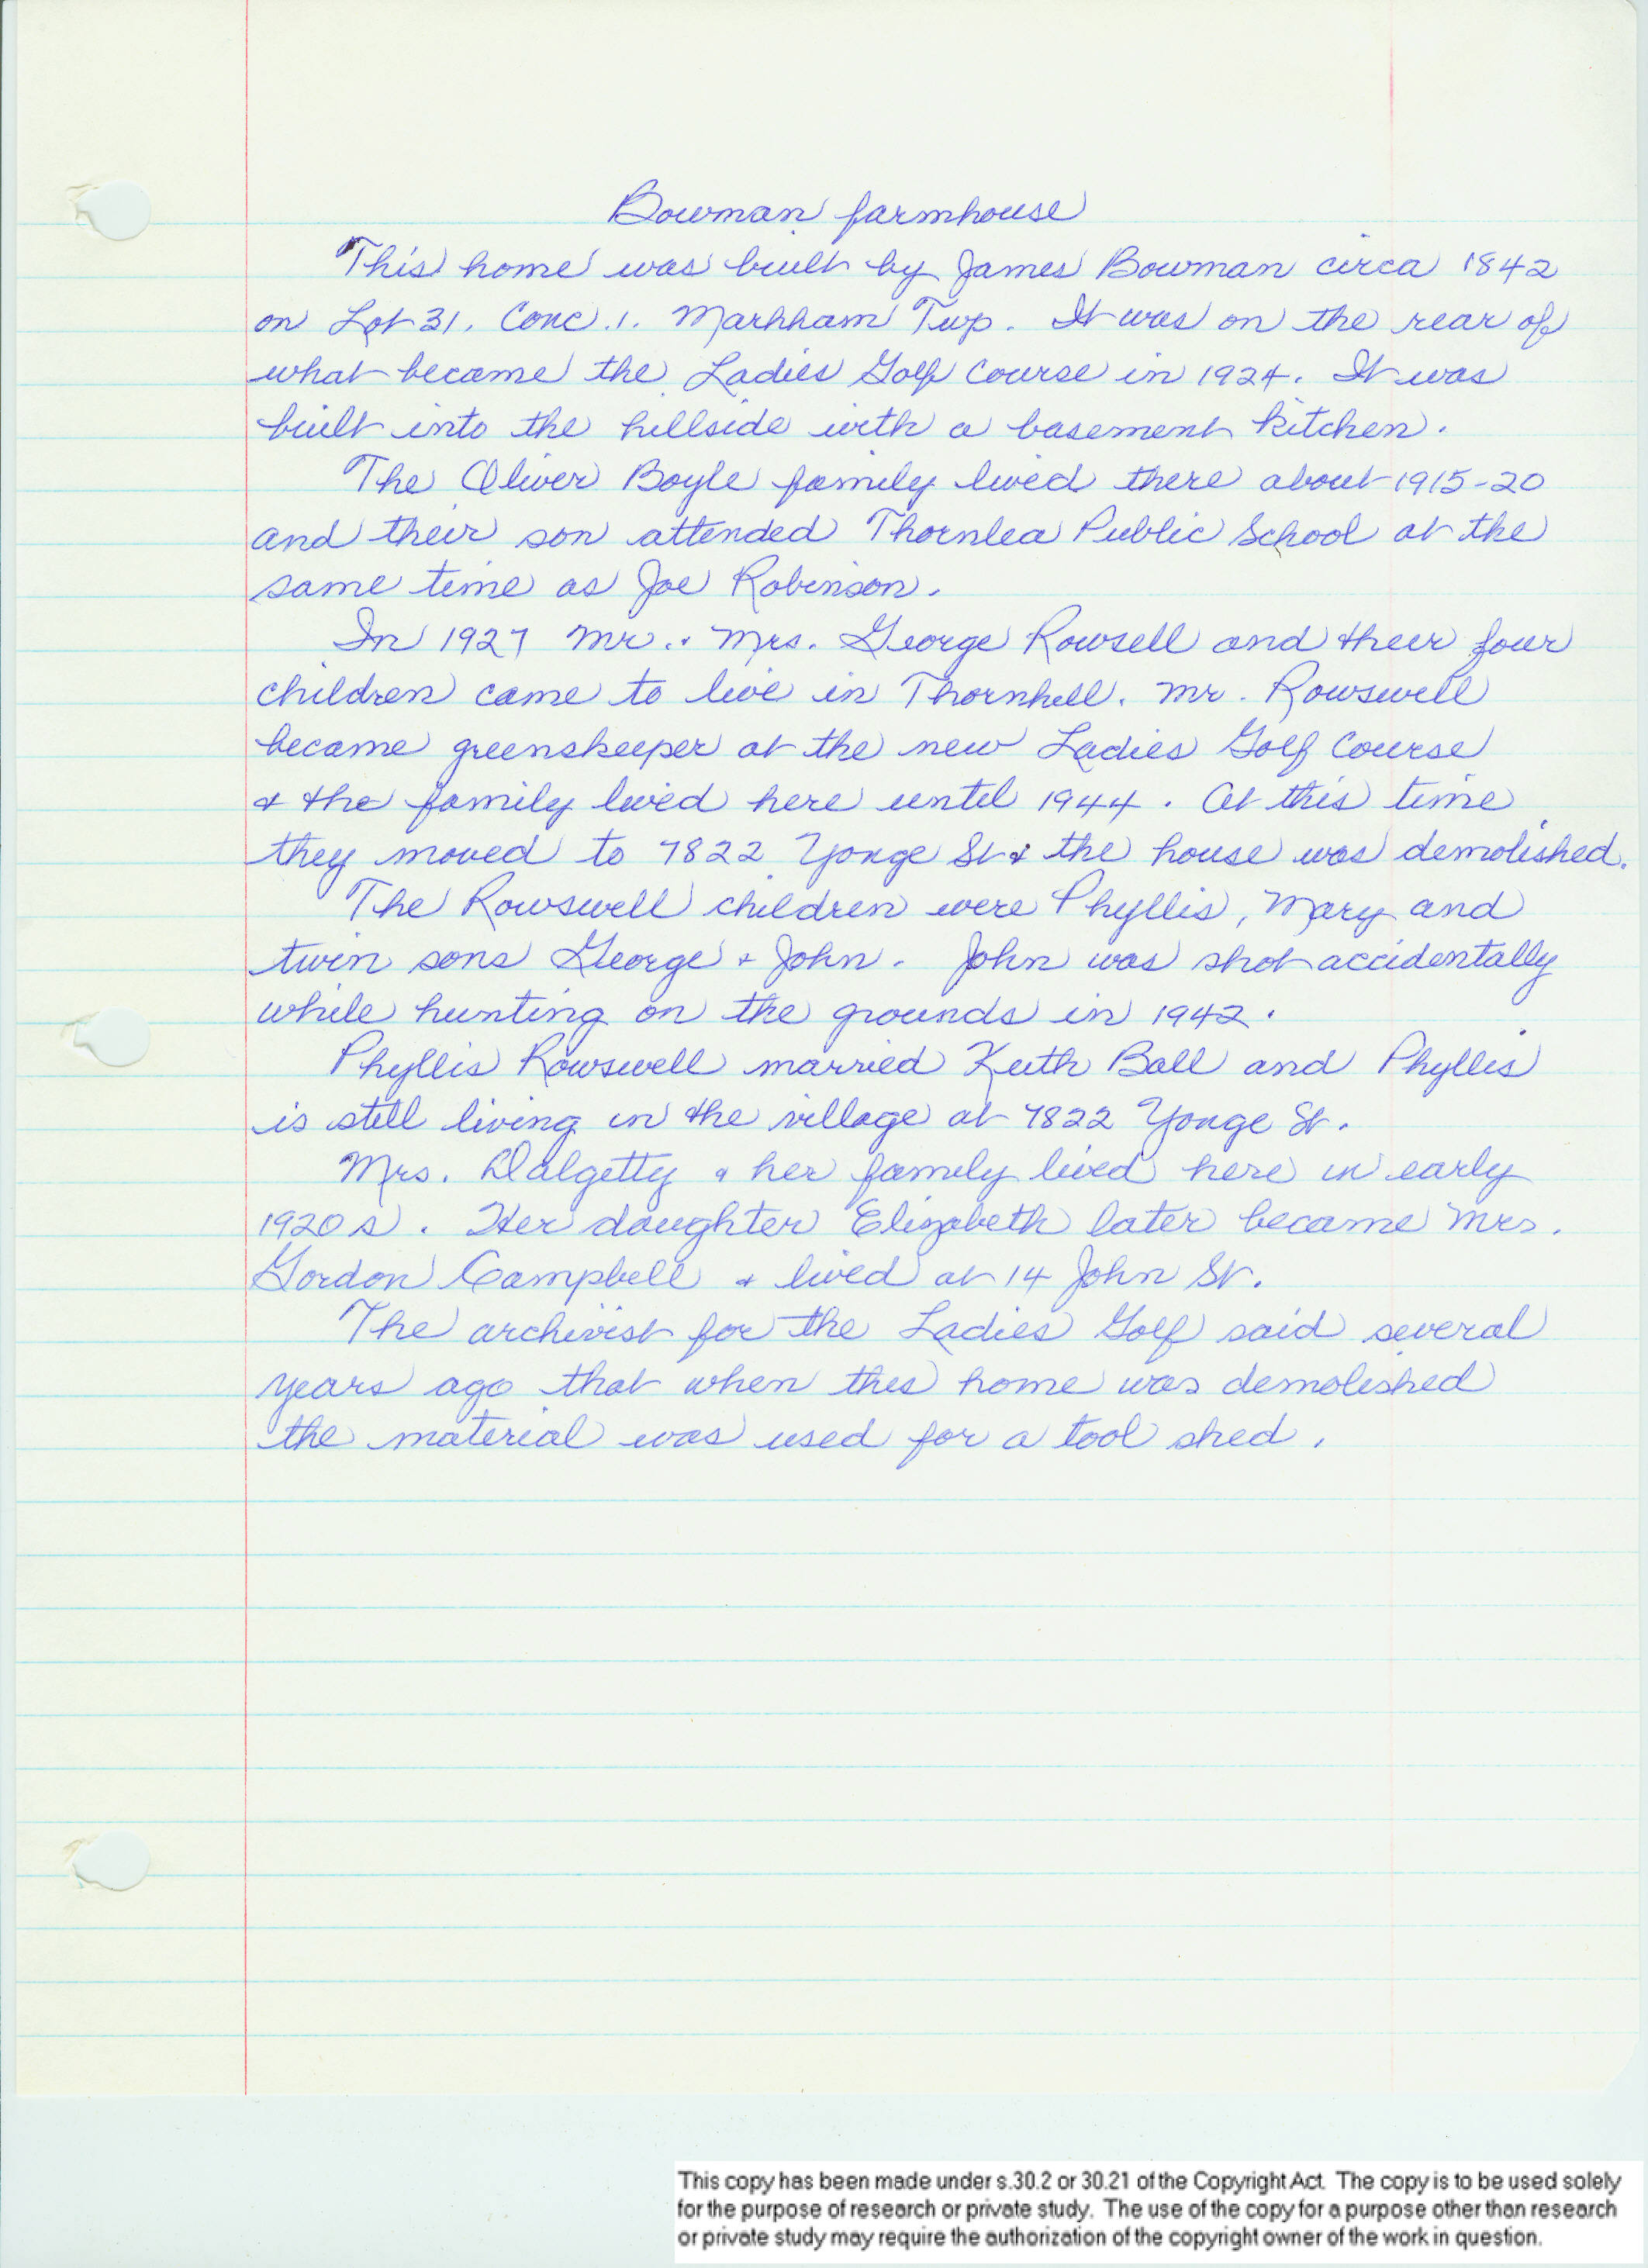 Bowman farmhouse
This home was built by James Bowman circa 1842
on Lot 31, Conc. 1. Markham Twp. It was on the rear of
what became the Ladies Golf Course in 1924. It was
built into the hillside with a basement kitchen.
The Oliver Boyle family lived there about 1915-20
and their son attended Thornlea Public School at the
same time as Joe Robinson.
In 1927 Mr. & Mrs. George Rowsell and their four
children came to live in Thornhill. Mr. Rowswell
became greenskeeper at the new Ladies Golf Course
& the family lived here until 1944. At this time
they moved to 7822 Yonge St & the house was demolished.
The Rowswell children were Phyllis, Mary and
twin sons George & John. John was shot accidentally
while hunting on the grounds in 1942.
Phyllis Rowswell married Keith Ball and Phyllis
is still living in the village at 7822 Yonge St.
Mrs. Dalgetty & her family lived here in early
1920s. Her daughter Elizabeth later became Mrs.
Gordon Campbell & lived at 14 John St.
The archivist for the Ladies Golf said several
years ago that when this home was demolished
the material was used for a tool shed.
This copy has been made under s.30.2 or 30.21 of the Copyright Act. The copy is to be used solely
for the purpose of research or private study. The use of the copy for a purpose other than research
or private study may require the authorization of the copyright owner of the work in question.